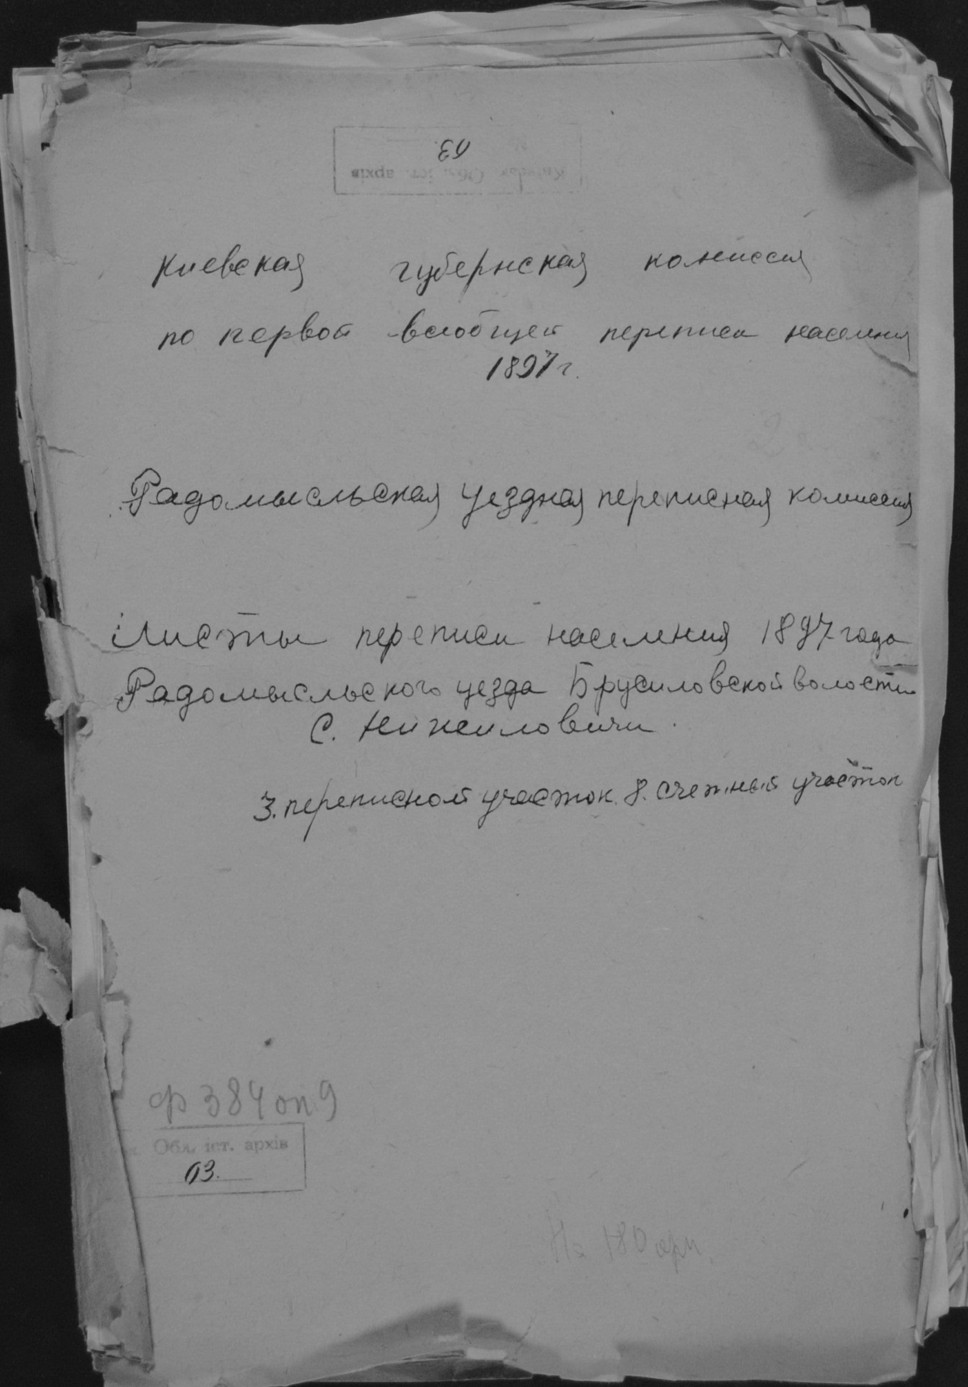 03
Київськ. Обл. іст. архів
Киевская губернская комиссия
по первой всеобщей переписи населения
1897 г.
Радомысльская уездная переписная комиссия
Листы переписи населения 1897 года
Радомысльского уезда Брусиловской волости
С. Нижиловичи.
3. переписной участок. 8. счетный участок
ф 384 оп 9
Обл. іст. архів
03.
На 180 арк.